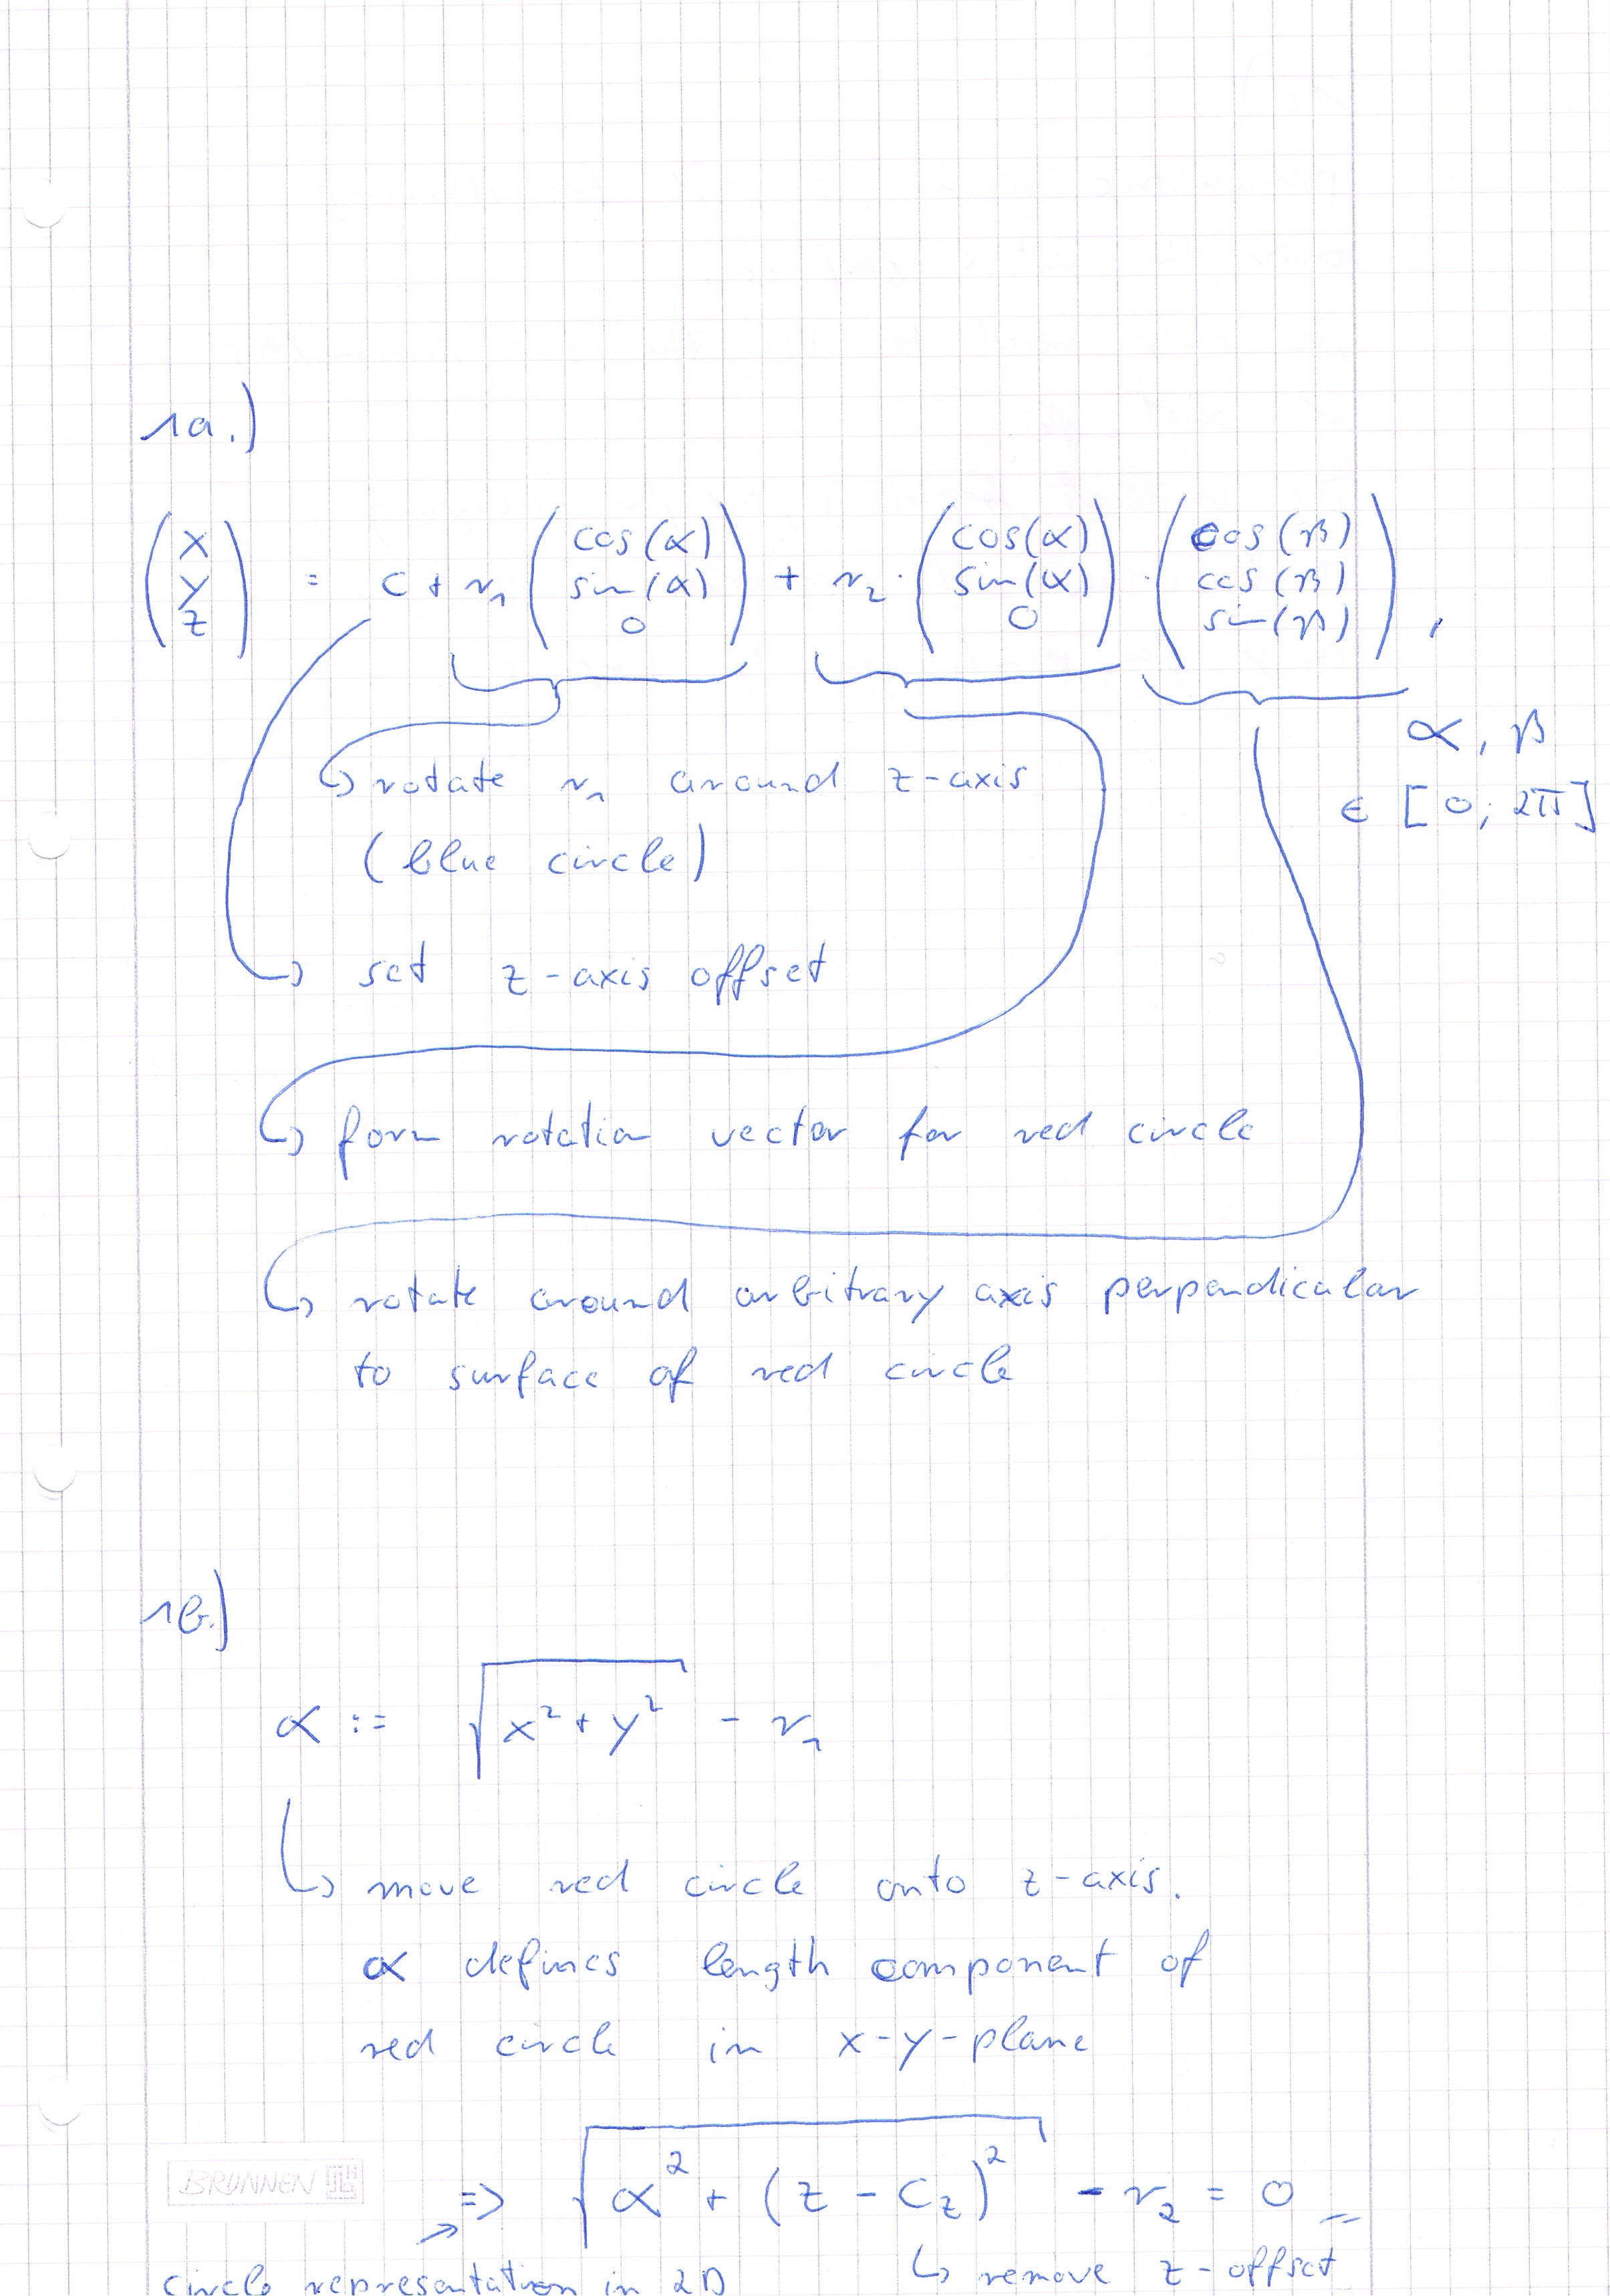 1a.)
(x y z) = c + r₁ (cos(α) sin(α) 0) + r₂ · (cos(α) sin(α) 0) · (cos(β) cos(β) sin(β)) ,
α, β
∈ [0; 2π]
↳ rotate r₁ around z-axis
(blue circle)
↳ set z-axis offset
↳ form rotation vector for red circle
↳ rotate around arbitrary axis perpendicular
to surface of red circle
1b.)
α := √(x² + y²) - r₁
↳ move red circle onto z-axis.
α defines length component of
red circle in x-y-plane
BRUNNEN
=> √(α² + (z - c_z)²) - r₂ = 0
circle representation in 2D ↳ remove z-offset